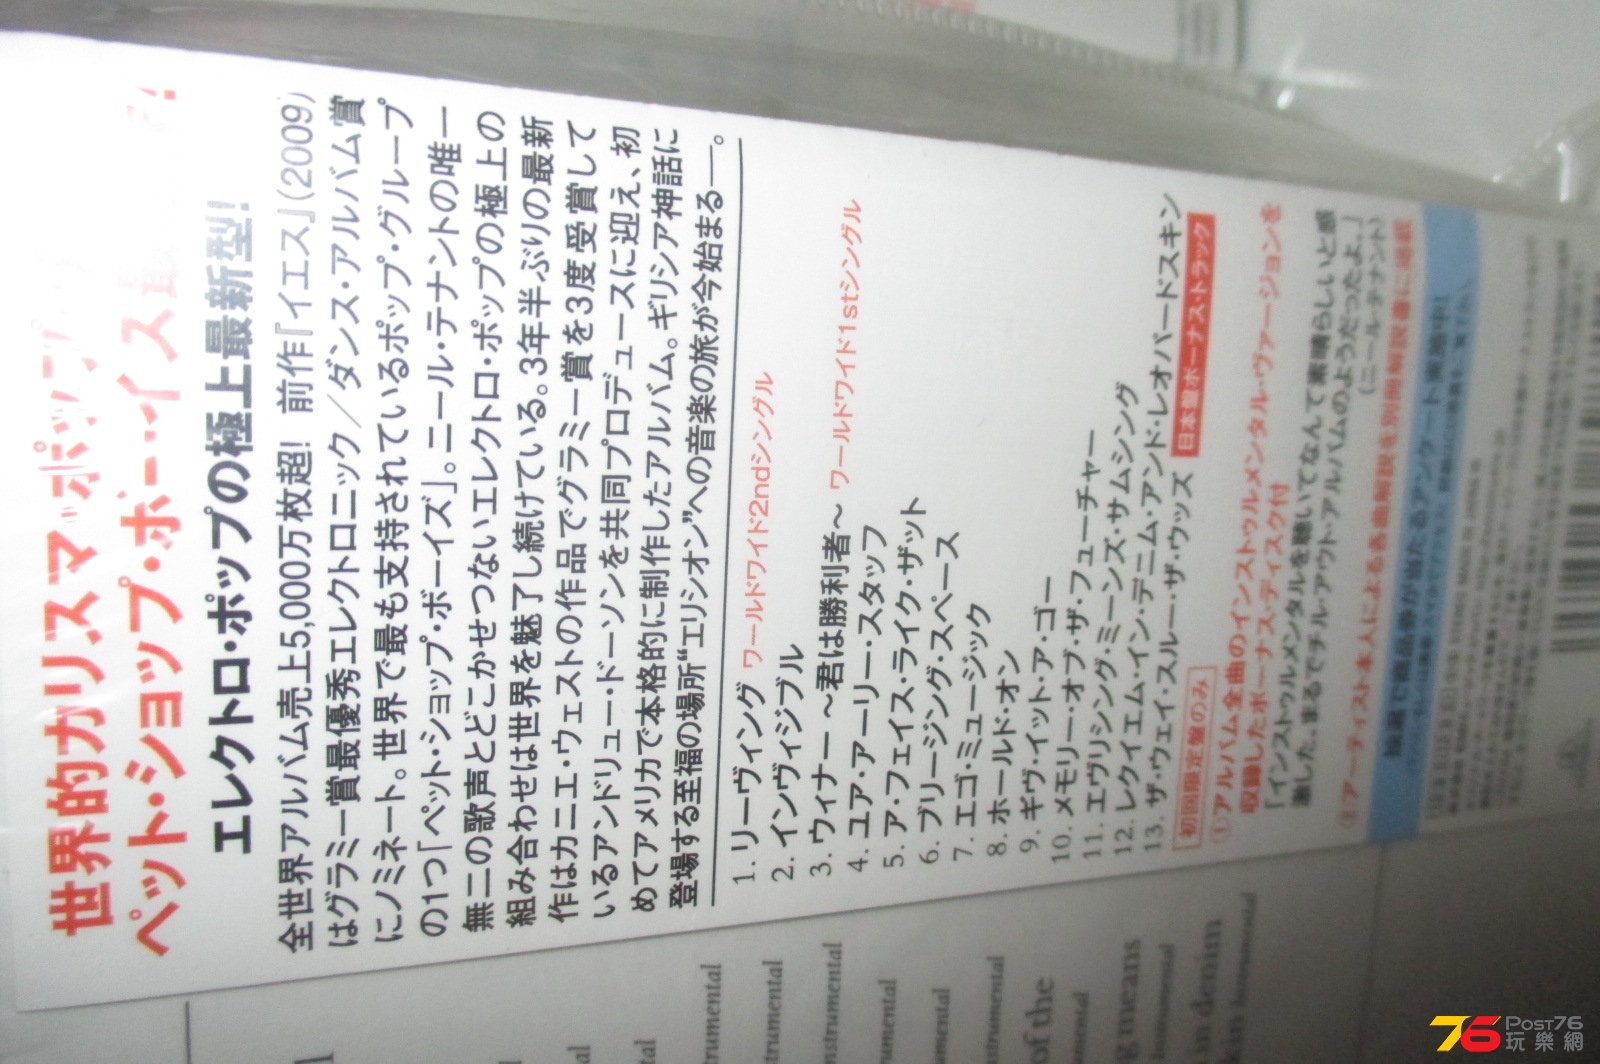 世界的カリスマ・ポップ
ペット・ショップ・ボーイズ最
エレクトロ・ポップの極上最新型!
全世界アルバム売上5,000万枚超! 前作『イエス』(2009)
はグラミー賞最優秀エレクトロニック/ダンス・アルバム賞
にノミネート。世界で最も支持されているポップ・グループ
の1つ「ペット・ショップ・ボーイズ」。ニール・テナントの唯一
無二の歌声とどこかせつないエレクトロ・ポップの極上の
組み合わせは世界を魅了し続けている。3年半ぶりの最新
作はカニエ・ウェストの作品でグラミー賞を3度受賞して
いるアンドリュー・ドーソンを共同プロデュースに迎え、初
めてアメリカで本格的に制作したアルバム。ギリシア神話に
登場する至福の場所“エリシオン”への音楽の旅が今始まる―。
1. リーヴィング ワールドワイド2ndシングル
2. インヴィジブル
3. ウィナー ～君は勝利者～ ワールドワイド1stシングル
4. ユア・アーリー・スタッフ
5. ア・フェイス・ライク・ザット
6. ブリージング・スペース
7. エゴ・ミュージック
8. ホールド・オン
9. ギヴ・イット・ア・ゴー
10. メモリー・オブ・ザ・フューチャー
11. エヴリシング・ミーンズ・サムシング
12. レクイエム・イン・デニム・アンド・レオパードスキン
13. ザ・ウェイ・スルー・ザ・ウッズ 日本盤ボーナス・トラック
初回限定盤のみ
①アルバム全曲のインストゥルメンタル・ヴァージョンを
収録したボーナス・ディスク付
「インストゥルメンタルを聴いてなんて素晴らしいと感
激した。まるでチル・アウト・アルバムのようだったよ。」
(ニール・テナント)
②アーティスト本人による各曲解説を別冊解説書に掲載
抽選で商品券が当たるアンケート実施中!
rumental
umental
strumental
umental
umental
strumental
of the
rumental
g means
in denim
kin
76 Post76
玩樂網